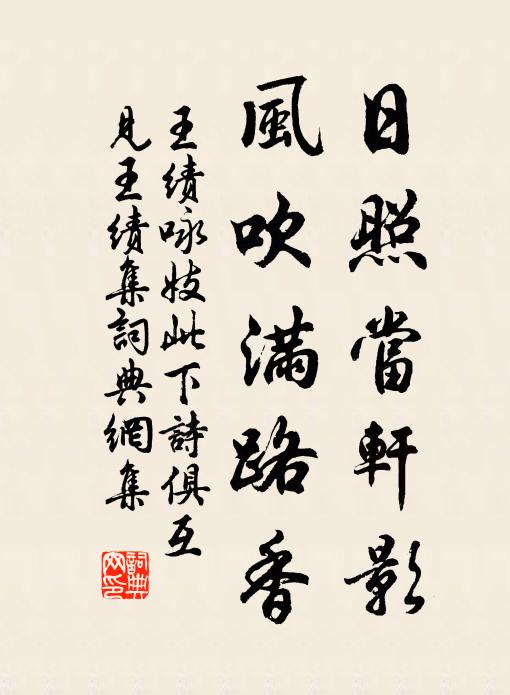 日照當軒影
風吹滿路香
王績咏妓此下詩俱互
見王績集詞典網集
詞典
網印